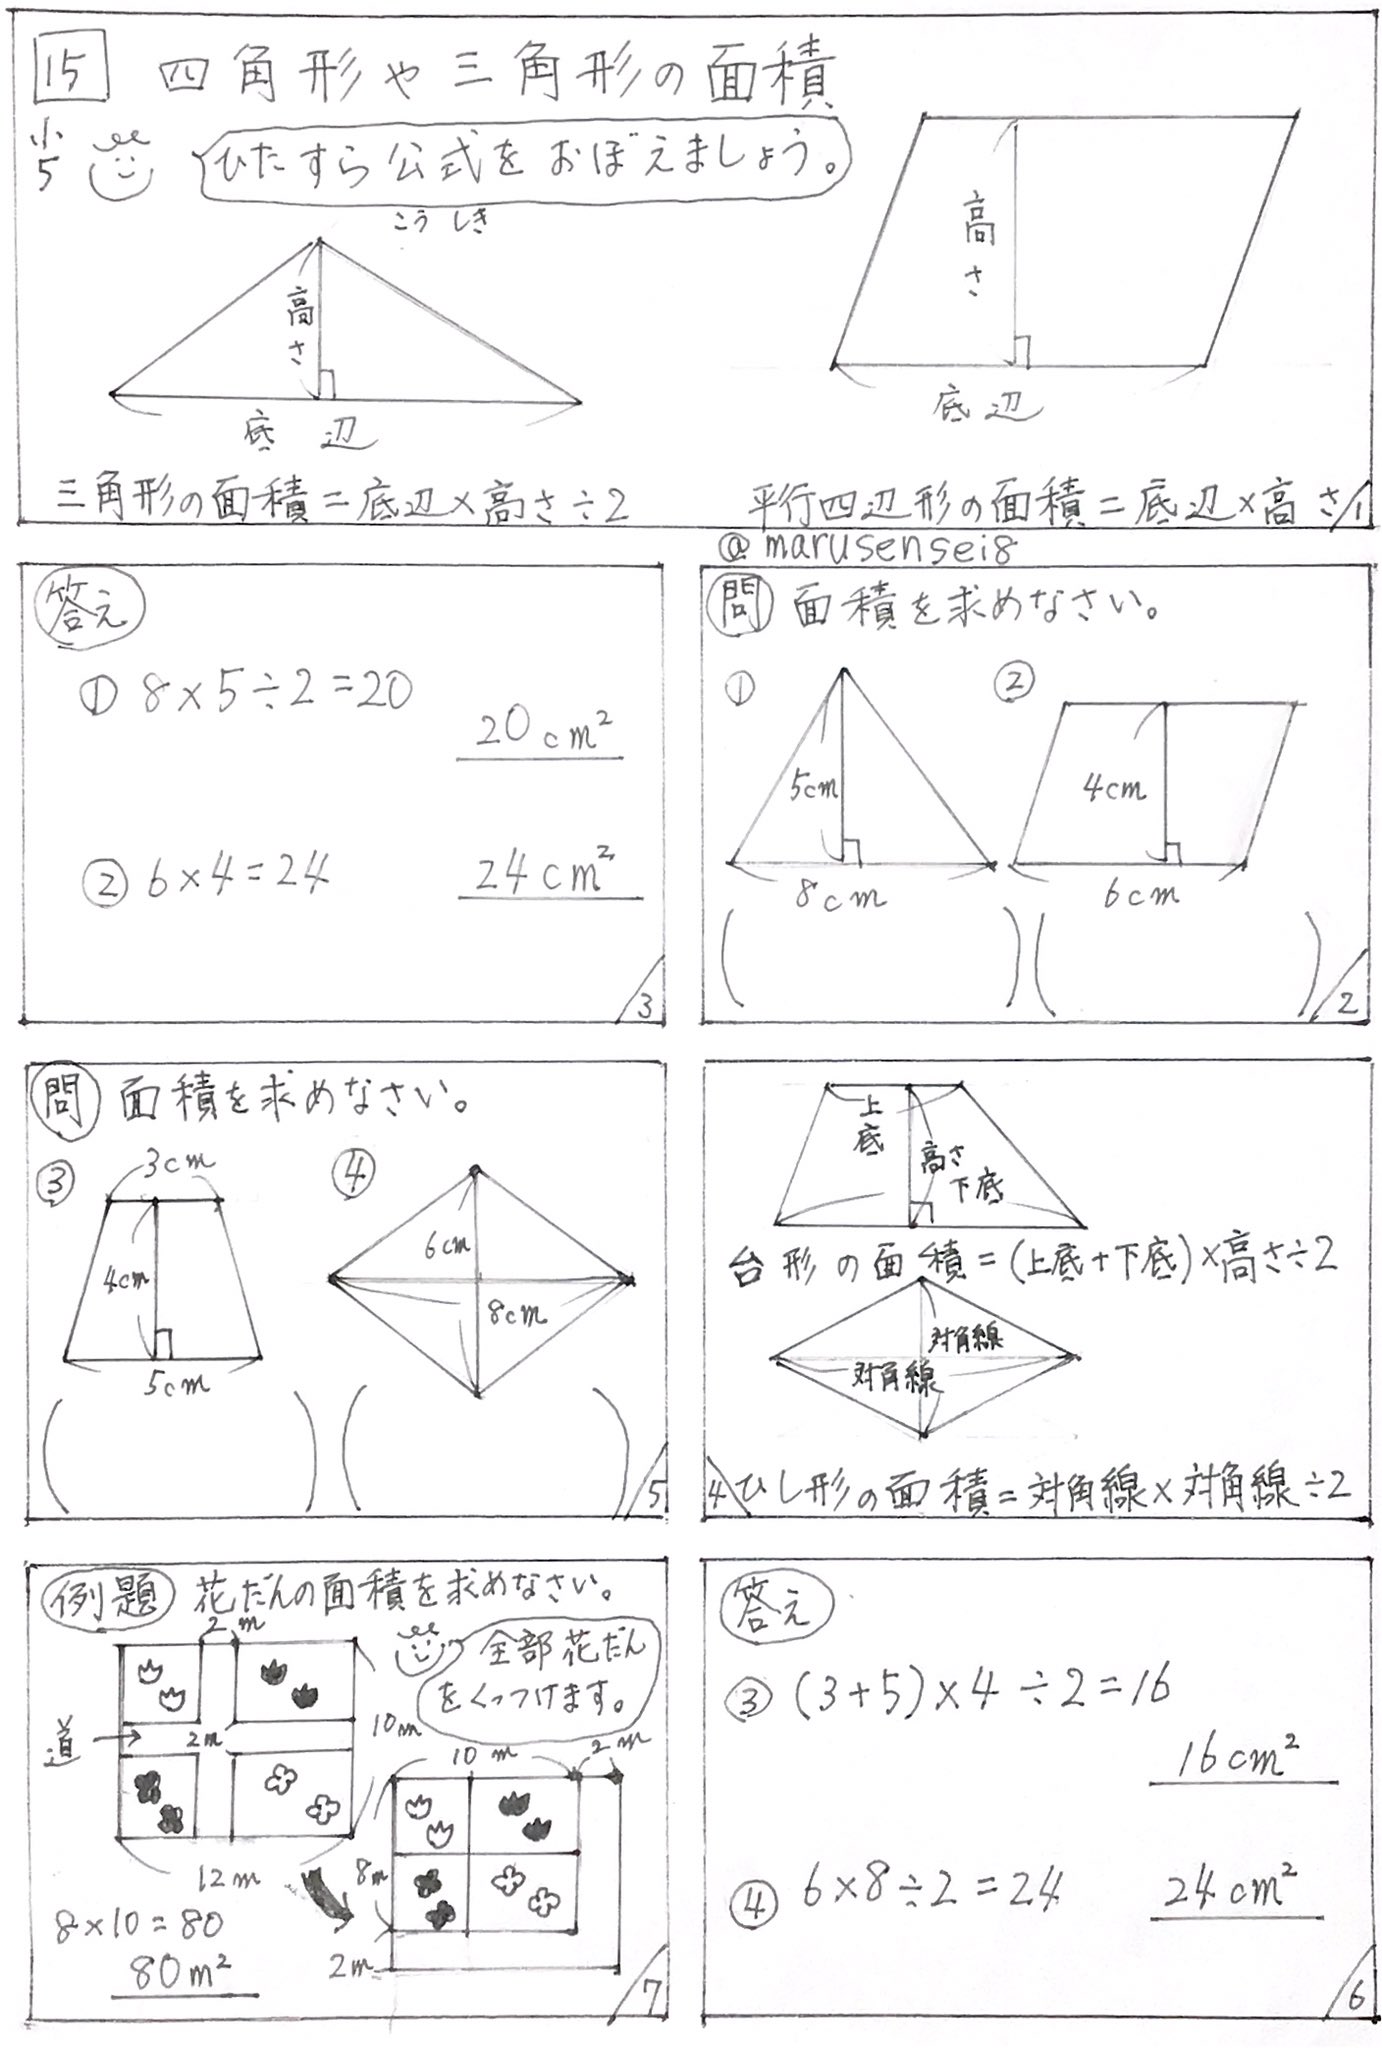 15 四角形や三角形の面積
小5
ひたすら公式をおぼえましょう。
こうしき
高さ
底辺
三角形の面積=底辺×高さ÷2
高さ
底辺
平行四辺形の面積=底辺×高さ
1
@marusensei8
問 面積を求めなさい。
①
5cm
8cm
②
4cm
6cm
( ) ( )
2
答え
① 8×5÷2=20
20cm²
② 6×4=24
24cm²
3
上底
高さ
下底
台形の面積=(上底+下底)×高さ÷2
対角線
対角線
ひし形の面積=対角線×対角線÷2
4
問 面積を求めなさい。
③
3cm
4cm
5cm
④
6cm
8cm
( ) ( )
5
答え
③ (3+5)×4÷2=16
16cm²
④ 6×8÷2=24
24cm²
6
例題 花だんの面積を求めなさい。
2m
全部花だん
をくっつけます。
道→
2m
10m
12m
10m
2m
8m
2m
8×10=80
80m²
7